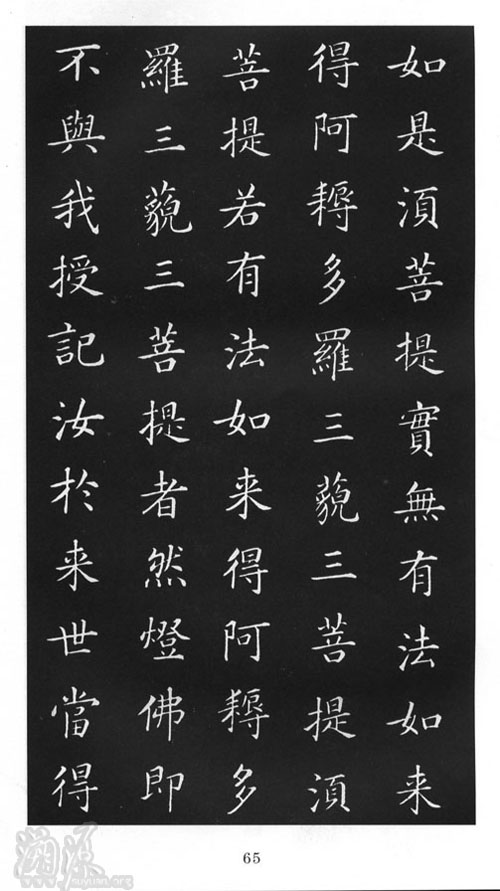 如是湏菩提實無有法如来
得阿耨多羅三藐三菩提湏
菩提若有法如来得阿耨多
羅三藐三菩提者然燈佛即
不與我授記汝於来世當得
65
溯源
suyuan.org